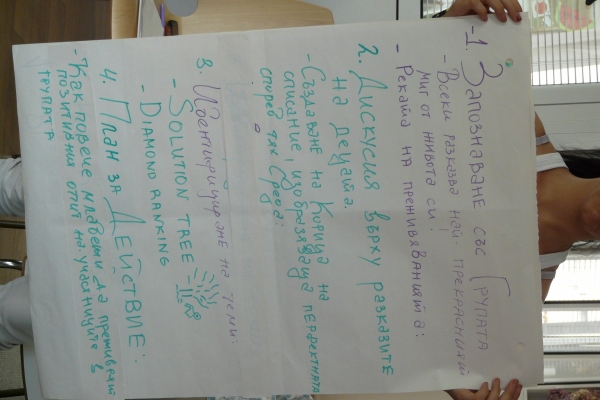 -1. Запознаване със Групата
- Всеки разказва най прекрасният
миг от живота си!
- Реката на преживяванията:
2. Дискусия върху разказите
на децата.
- Създаване на корица на
списание, изобразяваща перфектната
според тях среда:
3. Идентифициране на теми:
- SOLUTION TREE
- DIAMOND RANKING
4. План за Действие:
- Как повече младежи да преживеят
позитивния опит на участниците в
групата